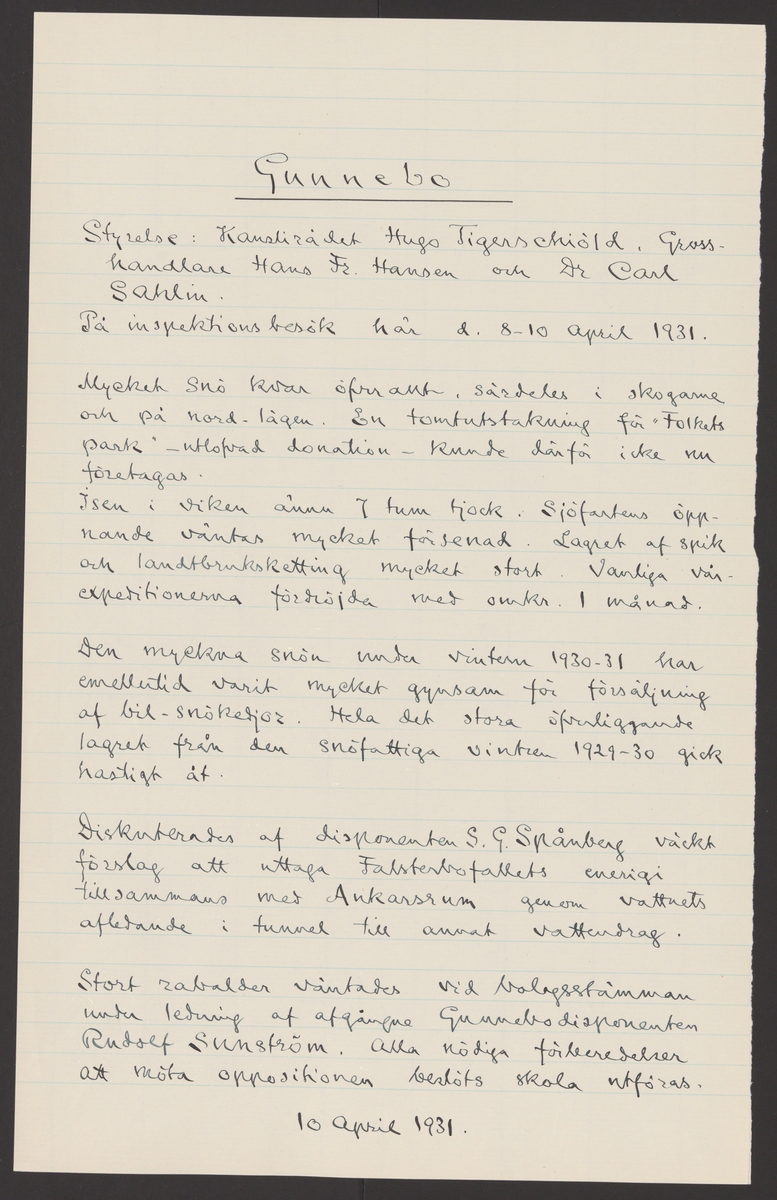 Gunnebo
Styrelse: Kanslirådet Hugo Tigerschiöld, Gross-
handlare Hans Fr. Hansen och Dr Carl
Sahlin.
På inspektionsbesök här d. 8-10 April 1931.
Mycket snö kvar öfverallt, särdeles i skogarne
och på nord-lägen. En tomtutstakning för "Folkets
park" - utlofvad donation - kunde därför icke nu
företagas.
Isen i viken ännu 7 tum tjock. Sjöfartens öpp-
nande väntas mycket försenad. Lagret af spik
och landtbrukskätting mycket stort. Vanliga vår-
expeditionerna fördröjda med omkr. 1 månad.
Den myckna snön under vintern 1930-31 har
emellertid varit mycket gynsam för försäljning
af bil-snökedjor. Hela det stora öfverliggande
lagret från den snöfattiga vintren 1929-30 gick
hastigt åt.
Diskuterades af disponenten S. G. Spånberg väckt
förslag att uttaga Falsterbofallets energi
tillsammans med Ankarsrum genom vattnets
afledande i tunnel till annat vattendrag.
Stort rabalder väntades vid bolagsstämman
under ledning af afgångne Gunnebodisponenten
Rudolf Sunström. Alla nödiga förberedelser
att möta oppositionen beslöts skola utföras.
10 April 1931.